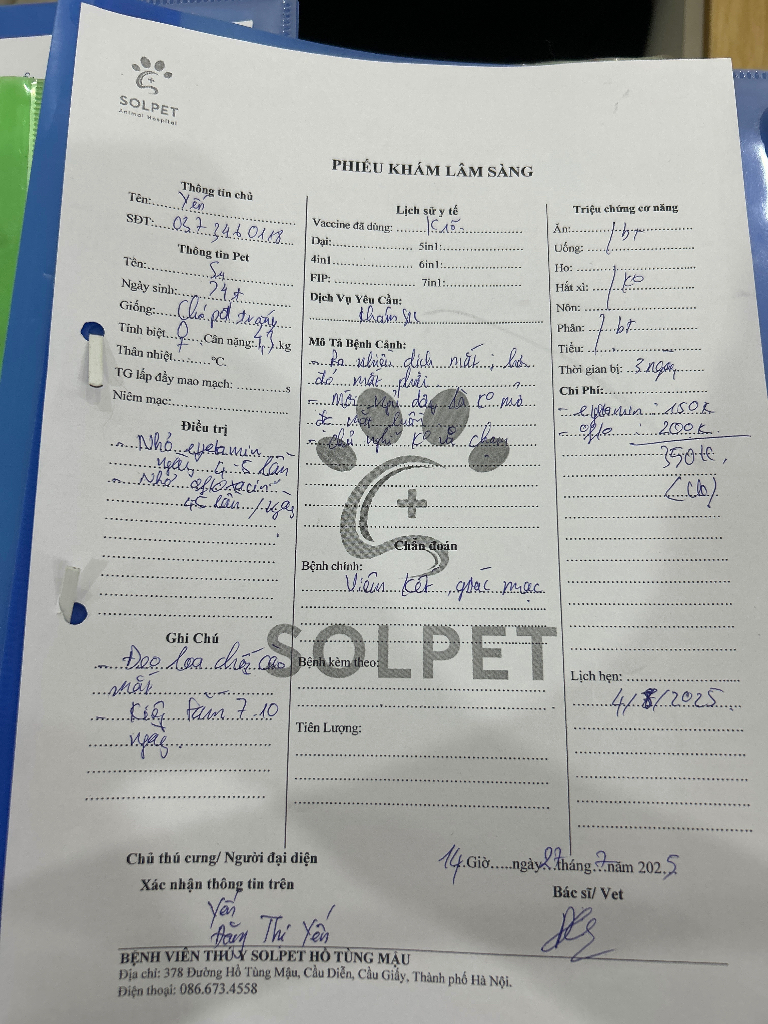 SOLPET
Animal Hospital
PHIẾU KHÁM LÂM SÀNG
Thông tin chủ
Tên: Yến
SĐT: 037 346 0118
Thông tin Pet
Tên: Su
Ngày sinh: 24t
Giống: Chó pot trắng
Tính biệt ♀ Cân nặng: 7,3 kg
Thân nhiệt: °C.
TG lấp đầy mao mạch: s
Niêm mạc:
Điều trị
- Nhỏ eyetamin
ngày 4-5 lần
- Nhỏ ofloxacin
4-5 lần / ngày
Ghi Chú
- Đeo loa chống cào
mắt
- Kiêng tắm 7-10
ngày.
Lịch sử y tế
Vaccine đã dùng:
Dại: 5in1:
4in1 6in1:
FIP: 7in1:
Dịch Vụ Yêu Cầu:
Khám SK
Mô Tả Bệnh Cảnh:
- Ra nhiều dịch mắt, hơi
đỏ mắt phải
- Mới ngủ dậy là ko mở
đc mắt luôn
- chủ nghi ko va chạm
Chẩn đoán
Bệnh chính:
Viêm kết, giác mạc
SOLPET
Bệnh kèm theo:
Tiên Lượng:
Triệu chứng cơ năng
Ăn: bt
Uống:
Ho:
Hắt xì: ko
Nôn:
Phân: bt
Tiểu:
Thời gian bị: 3 ngày
Chi Phí:
- eyetamin : 150k
- oflo : 200k
350k
(ck)
Lịch hẹn:
4/8/2025
Chủ thú cưng/ Người đại diện
Xác nhận thông tin trên
Yến
Đặng Thị Yến
14 Giờ.....ngày 27 tháng 7 năm 2025
Bác sĩ/ Vet
BỆNH VIỆN THÚ Y SOLPET HỒ TÙNG MẬU
Địa chỉ: 378 Đường Hồ Tùng Mậu, Cầu Diễn, Cầu Giấy, Thành phố Hà Nội.
Điện thoại: 086.673.4558